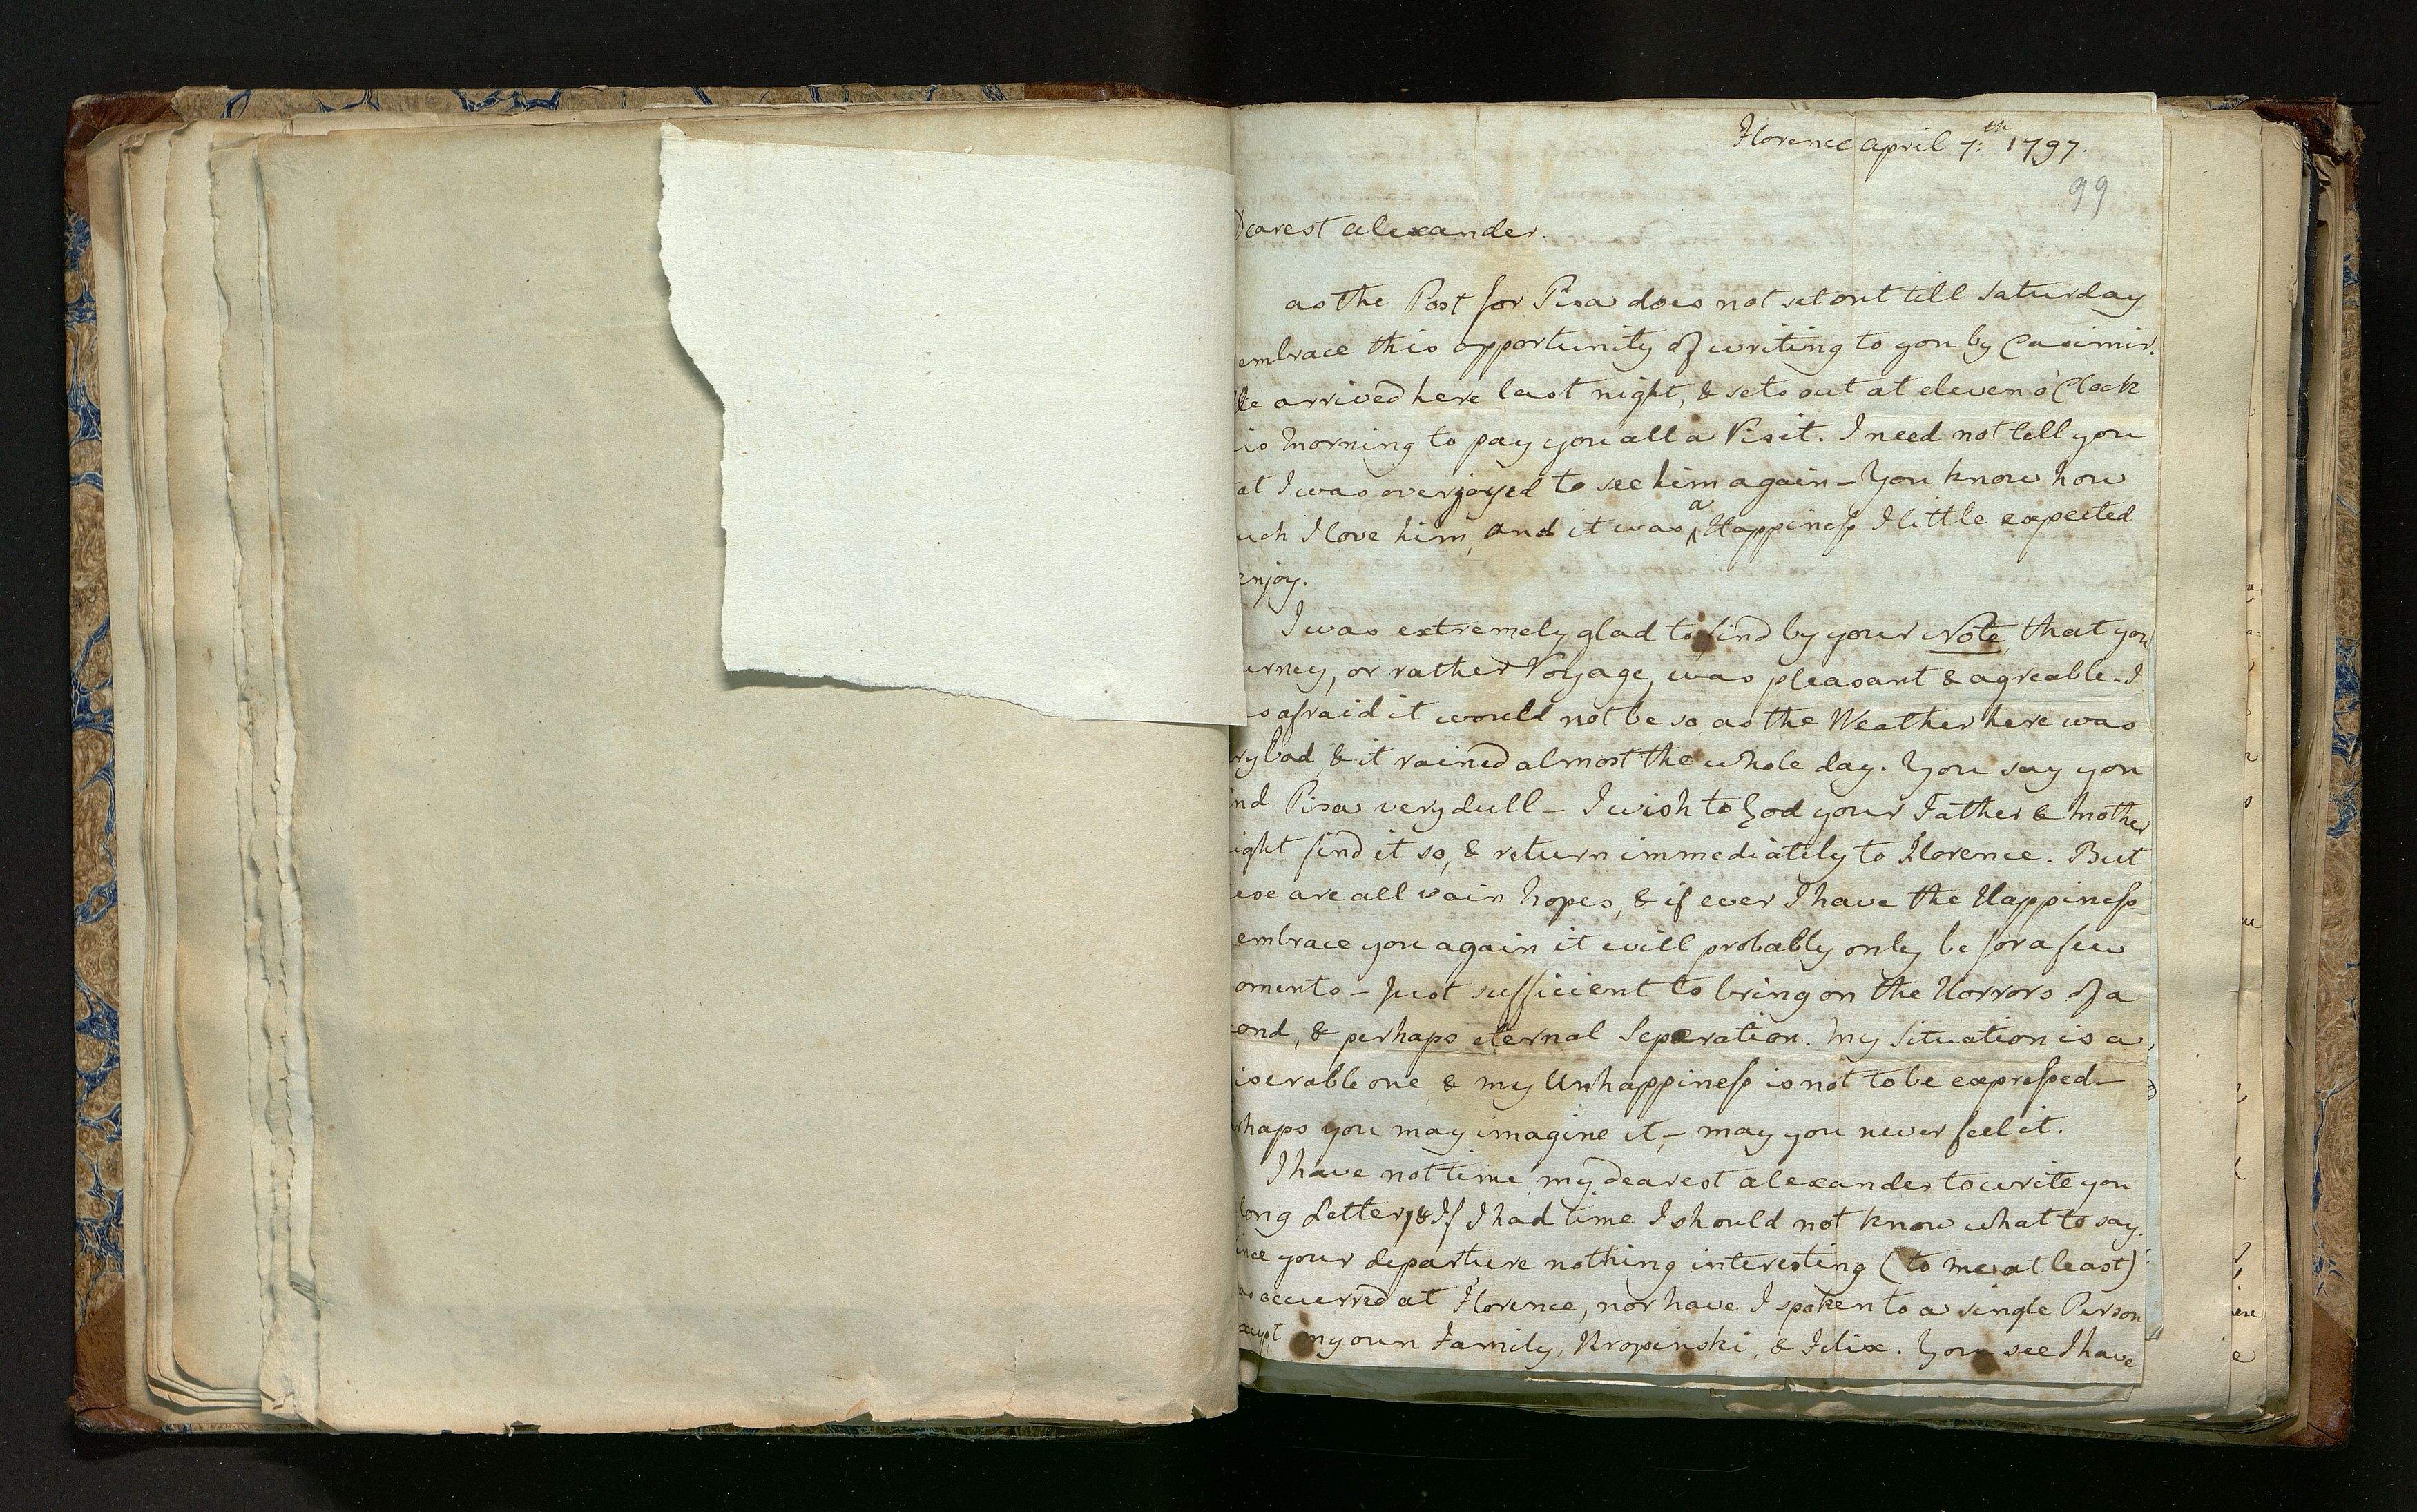 Florence april 7:th 1797.
99
Dearest alexander.
as the Post for Pisa does not set out till Saturday
embrace this opportunity of writing to you by Casimir.
He arrived here last night, & sets out at eleven o'Clock
is Morning to pay you all a Visit. I need not tell you
at I was overjoyed to see him again – You know how
uch I love him, and it was a Happiness I little expected
enjoy.
I was extremely glad to find by your Note, that you
urney, or rather Voyage, was pleasant & agreable. I
s afraid it would not be so as the Weather here was
ry bad, & it rained almost the whole day. You say you
ind Pisa very dull – I wish to God your Father & Mother
ight find it so, & return immediately to Florence. But
ese are all vain hopes, & if ever I have the Happiness
embrace you again it will probably only be for a few
oments – Just sufficient to bring on the Horrors of a
cond, & perhaps eternal Separation. My Situation is a
iserable one, & my Unhappiness is not to be expressed –
rhaps you may imagine it, – may you never feel it.
I have not time, my dearest alexander to write you
long Letter, & If I had time I should not know what to say.
ince your departure nothing interesting (to me at least)
as occurred at Florence, nor have I spoken to a single Person
xcept my own Family, Kropinski, & Felix. You see I have